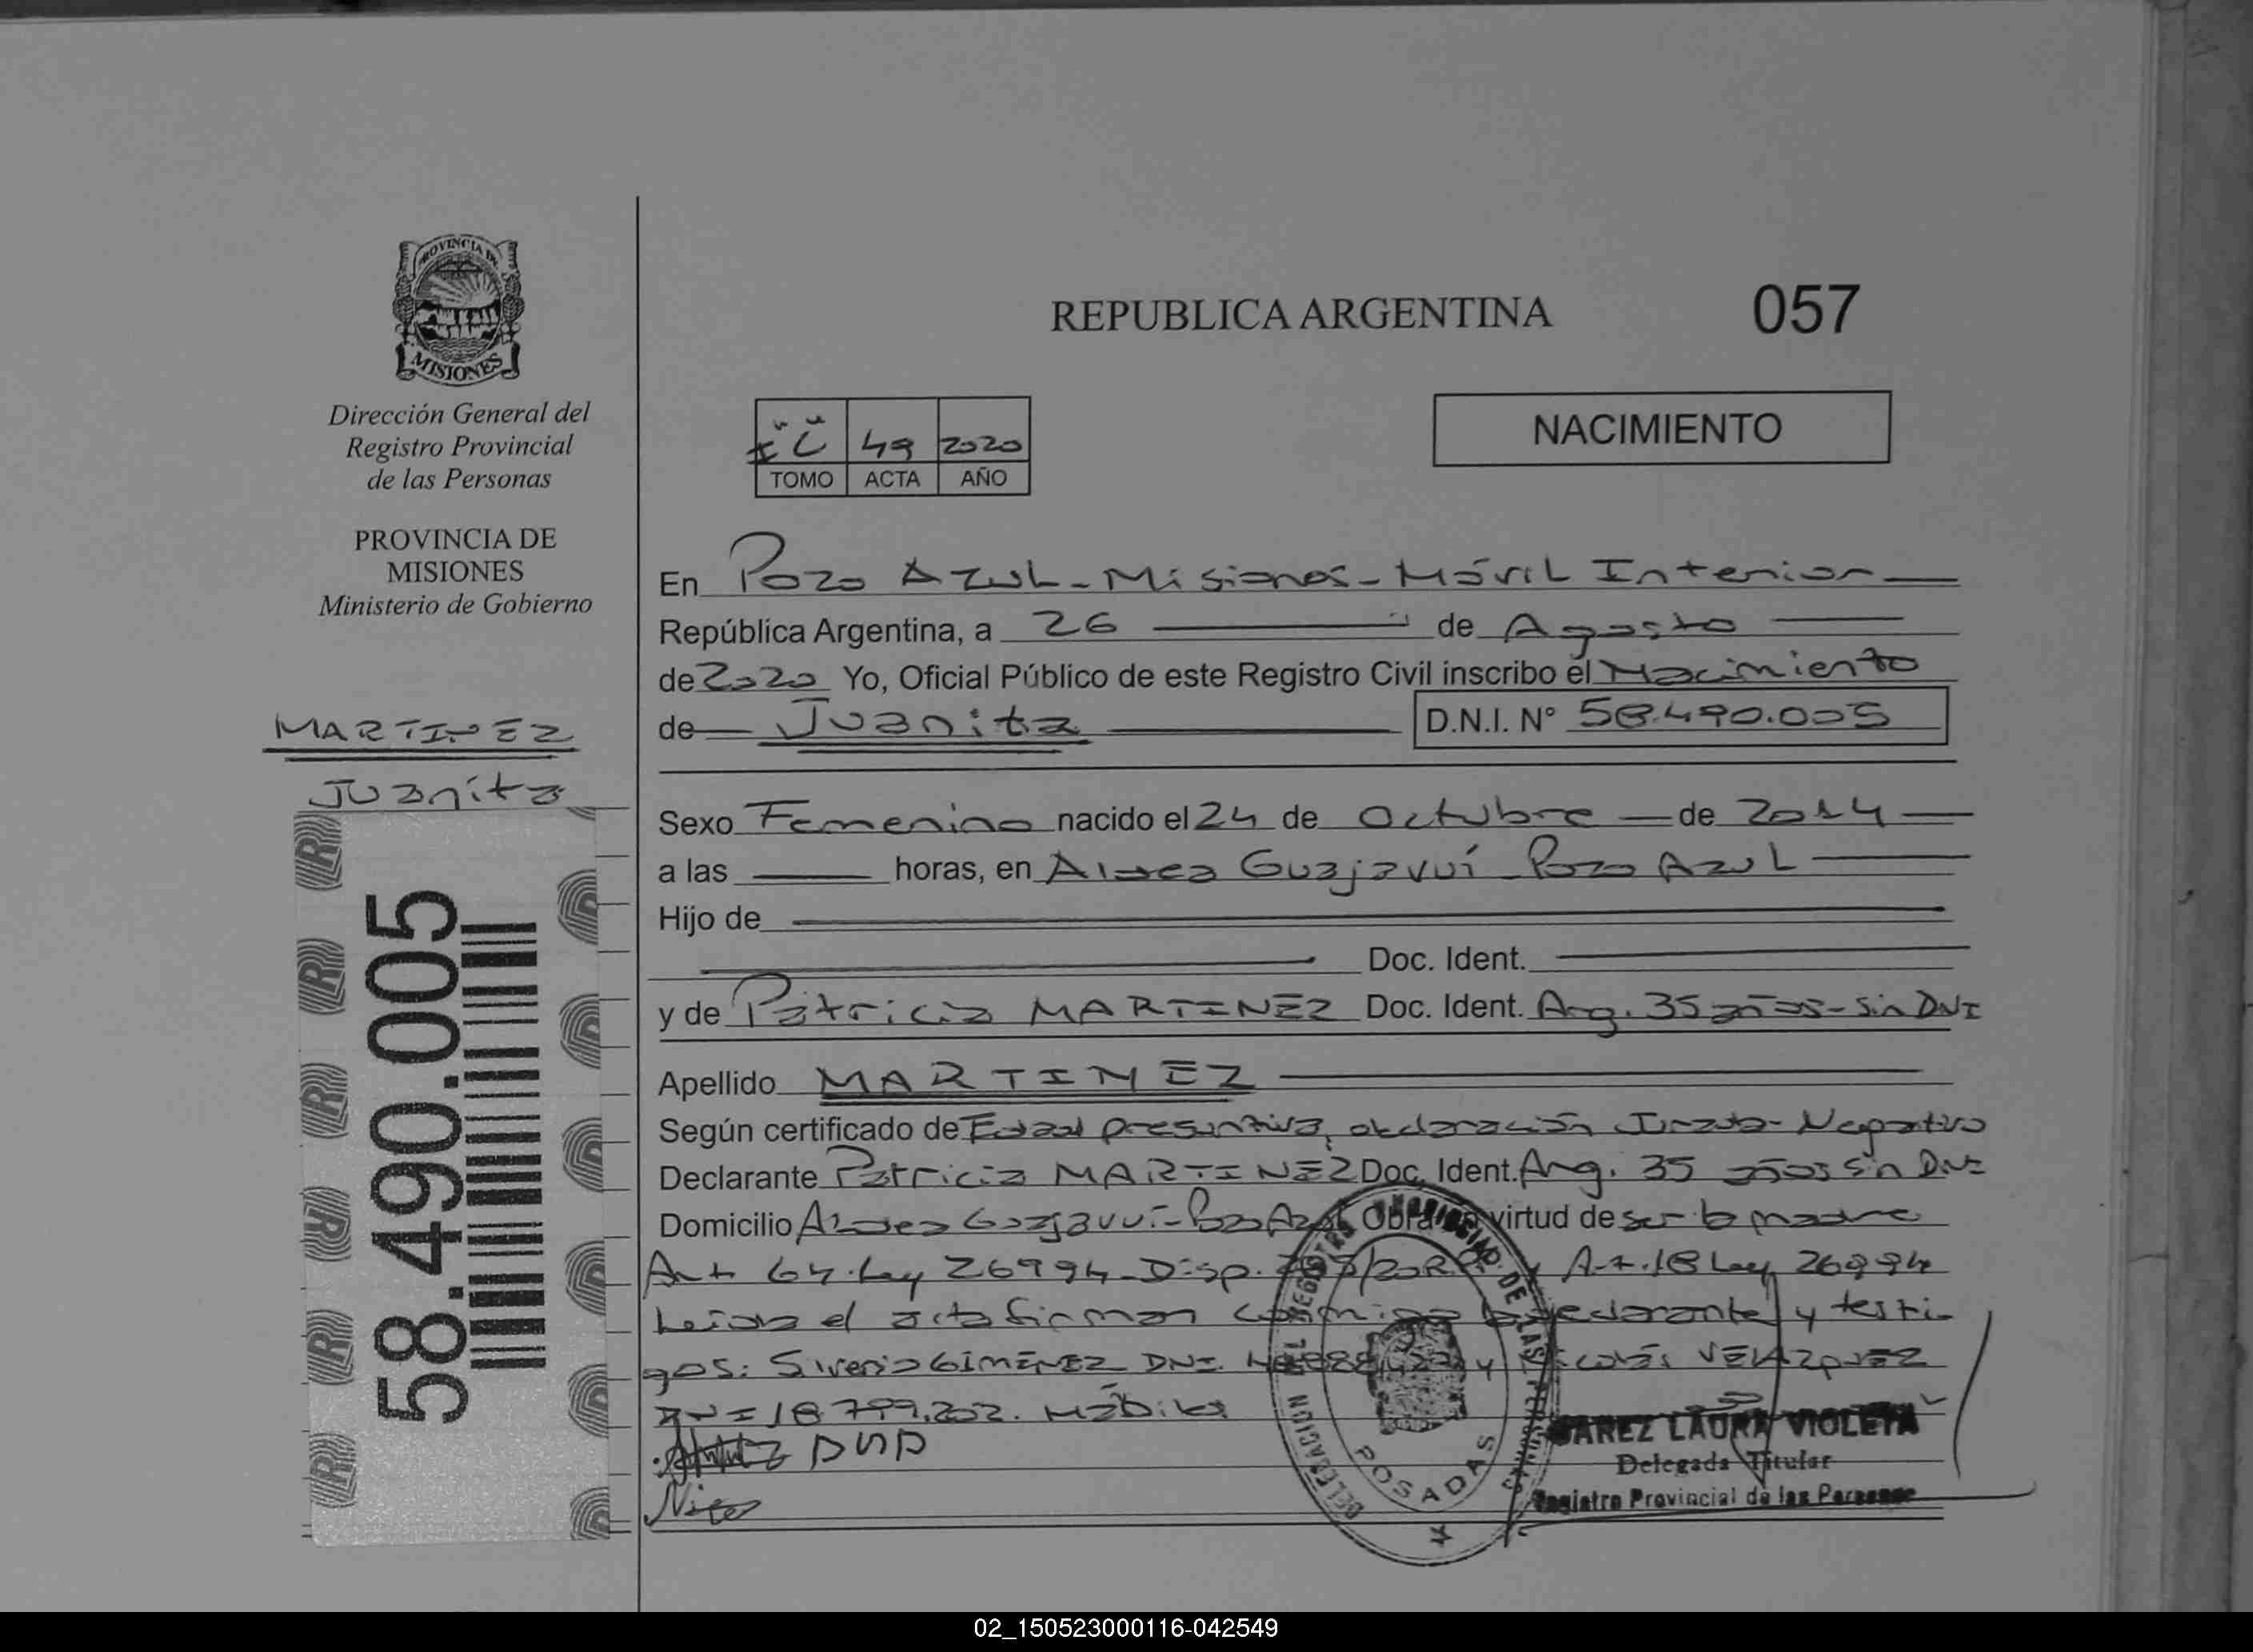 PROVINCIA DE
MISIONES
Dirección General del
Registro Provincial
de las Personas
PROVINCIA DE
MISIONES
Ministerio de Gobierno
MARTINEZ
Juanita
58.490.005
REPUBLICA ARGENTINA
057
NACIMIENTO
49 2020
TOMO ACTA AÑO
En Pozo Azul - Misiones - Móvil Interior
República Argentina, a 26 de Agosto
de 2020 Yo, Oficial Público de este Registro Civil inscribo el Nacimiento
de Juanita D.N.I. N° 58.490.005
Sexo Femenino nacido el 24 de Octubre de 2014
a las horas, en Aldea Guajavuí - Pozo Azul
Hijo de
Doc. Ident.
y de Patricia MARTINEZ Doc. Ident. Arg. 35 años - Sin DNI
Apellido MARTINEZ
Según certificado de Edad presuntiva, declaración Jurada - Negativo
Declarante Patricia MARTINEZ Doc. Ident. Arg. 35 años Sin DNI
Domicilio Aldea Guajavuí - Pozo Azul Obra en virtud de ser la madre
Art 64. Ley 26994 - Disp. Art. 18 Ley 26994
Leída el acta firman conmigo la declarante y testi-
gos: Siverio GIMENEZ DNI. y Nicolás VELAZQUEZ
DNI 18.799.202.
DELEGACION DEL REGISTRO PROVINCIAL DE LAS PERSONAS
POSADAS
LAURA VIOLETA
Delegada Titular
Registro Provincial de las Personas
02_150523000116-042549